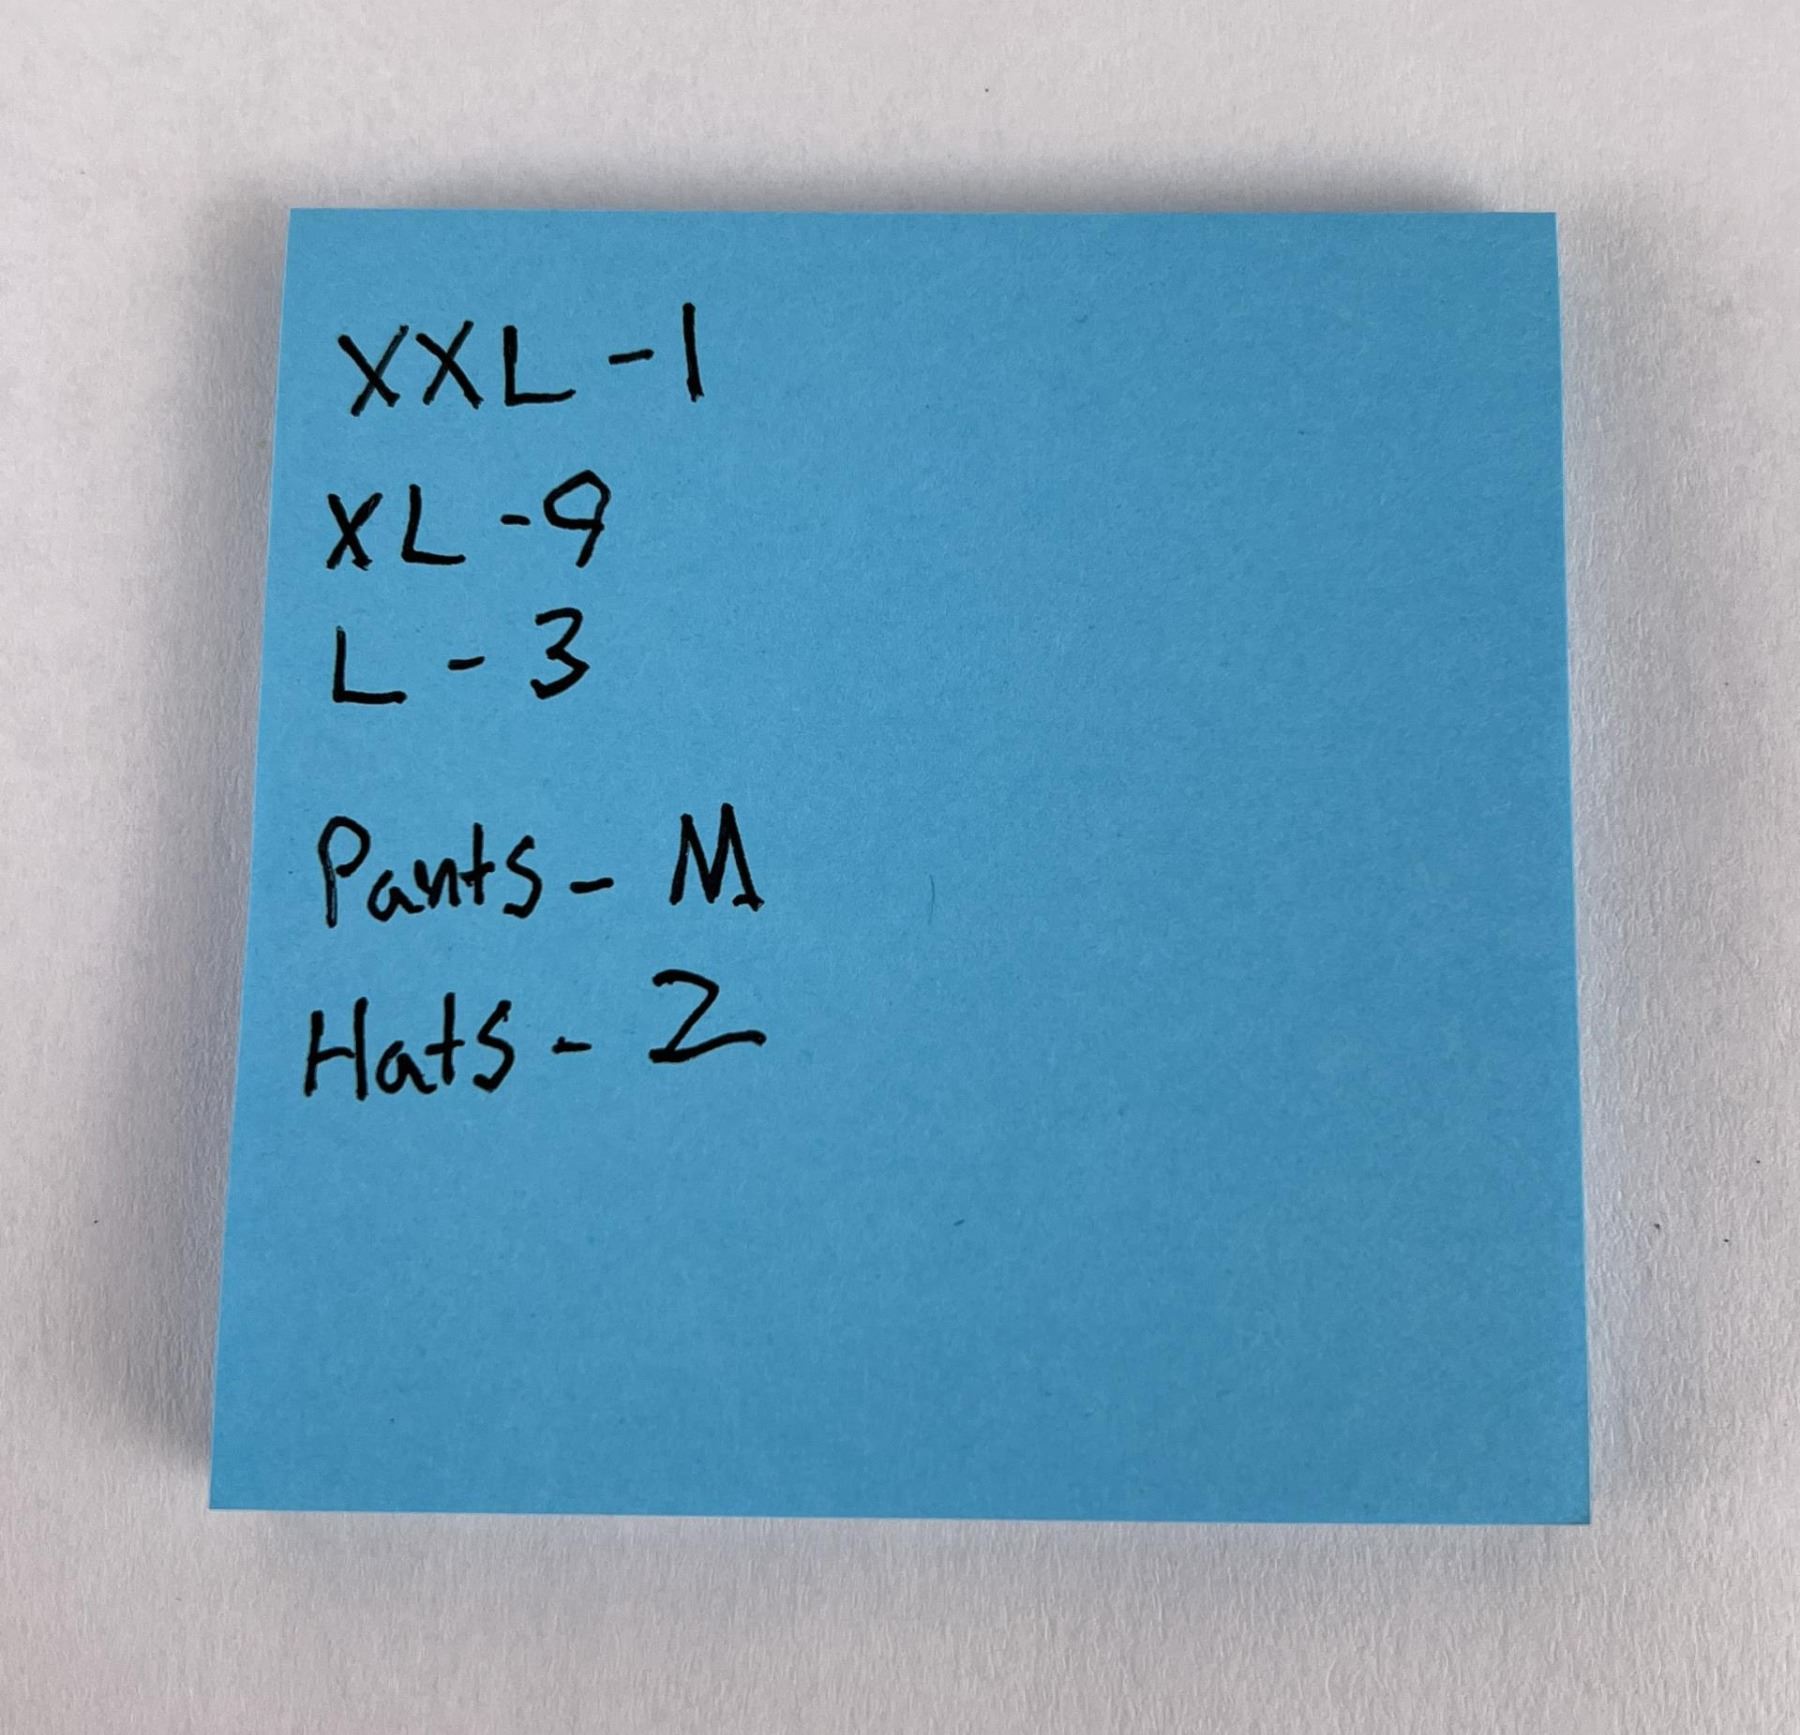 XXL - 1
XL - 9
L - 3
Pants - M
Hats - 2